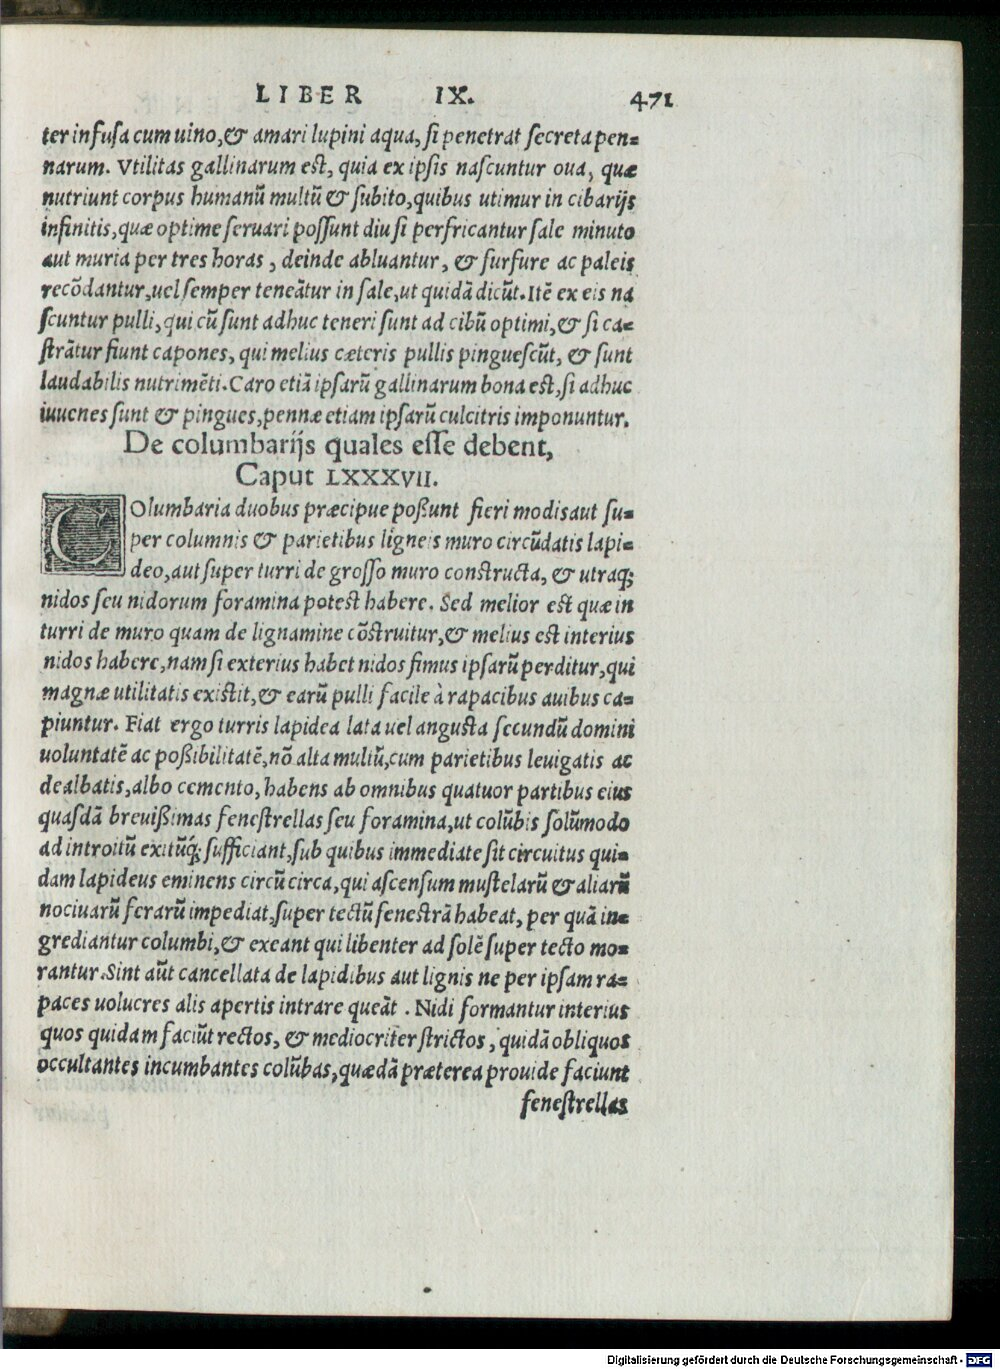 LIBER IX. 471
ter infusa cum uino, & amari lupini aqua, si penetrat secreta pen=
narum. Vtilitas gallinarum est, quia ex ipsis nascuntur oua, quæ
nutriunt corpus humanū multū & subito, quibus utimur in cibarijs
infinitis, quæ optime seruari possunt diu si perfricantur sale minuto
aut muria per tres horas, deinde abluantur, & furfure ac paleis
recōdantur, uel semper teneātur in sale, ut quidā dicūt. Itē ex eis na
scuntur pulli, qui cū sunt adhuc teneri sunt ad cibū optimi, & si ca=
strātur fiunt capones, qui melius cæteris pullis pinguescūt, & sunt
laudabilis nutrimēti. Caro etiā ipsarū gallinarum bona est, si adhuc
iuuenes sunt & pingues, pennæ etiam ipsarū culcitris imponuntur.
De columbarijs quales esse debent,
Caput LXXXVII.
COlumbaria duobus præcipue possunt fieri modis aut su=
per columnis & parietibus ligneis muro circūdatis lapi=
deo, aut super turri de grosso muro constructa, & utraq;
nidos seu nidorum foramina potest habere. Sed melior est quæ in
turri de muro quam de lignamine cōstruitur, & melius est interius
nidos habere, nam si exterius habet nidos fimus ipsarū perditur, qui
magnæ utilitatis existit, & earū pulli facile à rapacibus auibus ca=
piuntur. Fiat ergo turris lapidea lata uel angusta secundū domini
uoluntatē ac possibilitatē, nō alta multū, cum parietibus leuigatis ac
dealbatis, albo cemento, habens ab omnibus quatuor partibus eius
quasdā breuissimas fenestrellas seu foramina, ut colūbis solūmodo
ad introitū exitūq; sufficiant, sub quibus immediate sit circuitus qui=
dam lapideus eminens circū circa, qui ascensum mustelarū & aliarū
nociuarū ferarū impediat, super tectū fenestrā habeat, per quā in=
grediantur columbi, & exeant qui libenter ad solē super tecto mo=
rantur. Sint aūt cancellata de lapidibus aut lignis ne per ipsam ra=
paces uolucres alis apertis intrare queāt. Nidi formantur interius
quos quidam faciūt rectos, & mediocriter strictos, quidā obliquos
occultantes incumbantes colūbas, quædā præterea prouide faciunt
fenestrellas
Digitalisierung gefördert durch die Deutsche Forschungsgemeinschaft - DFG